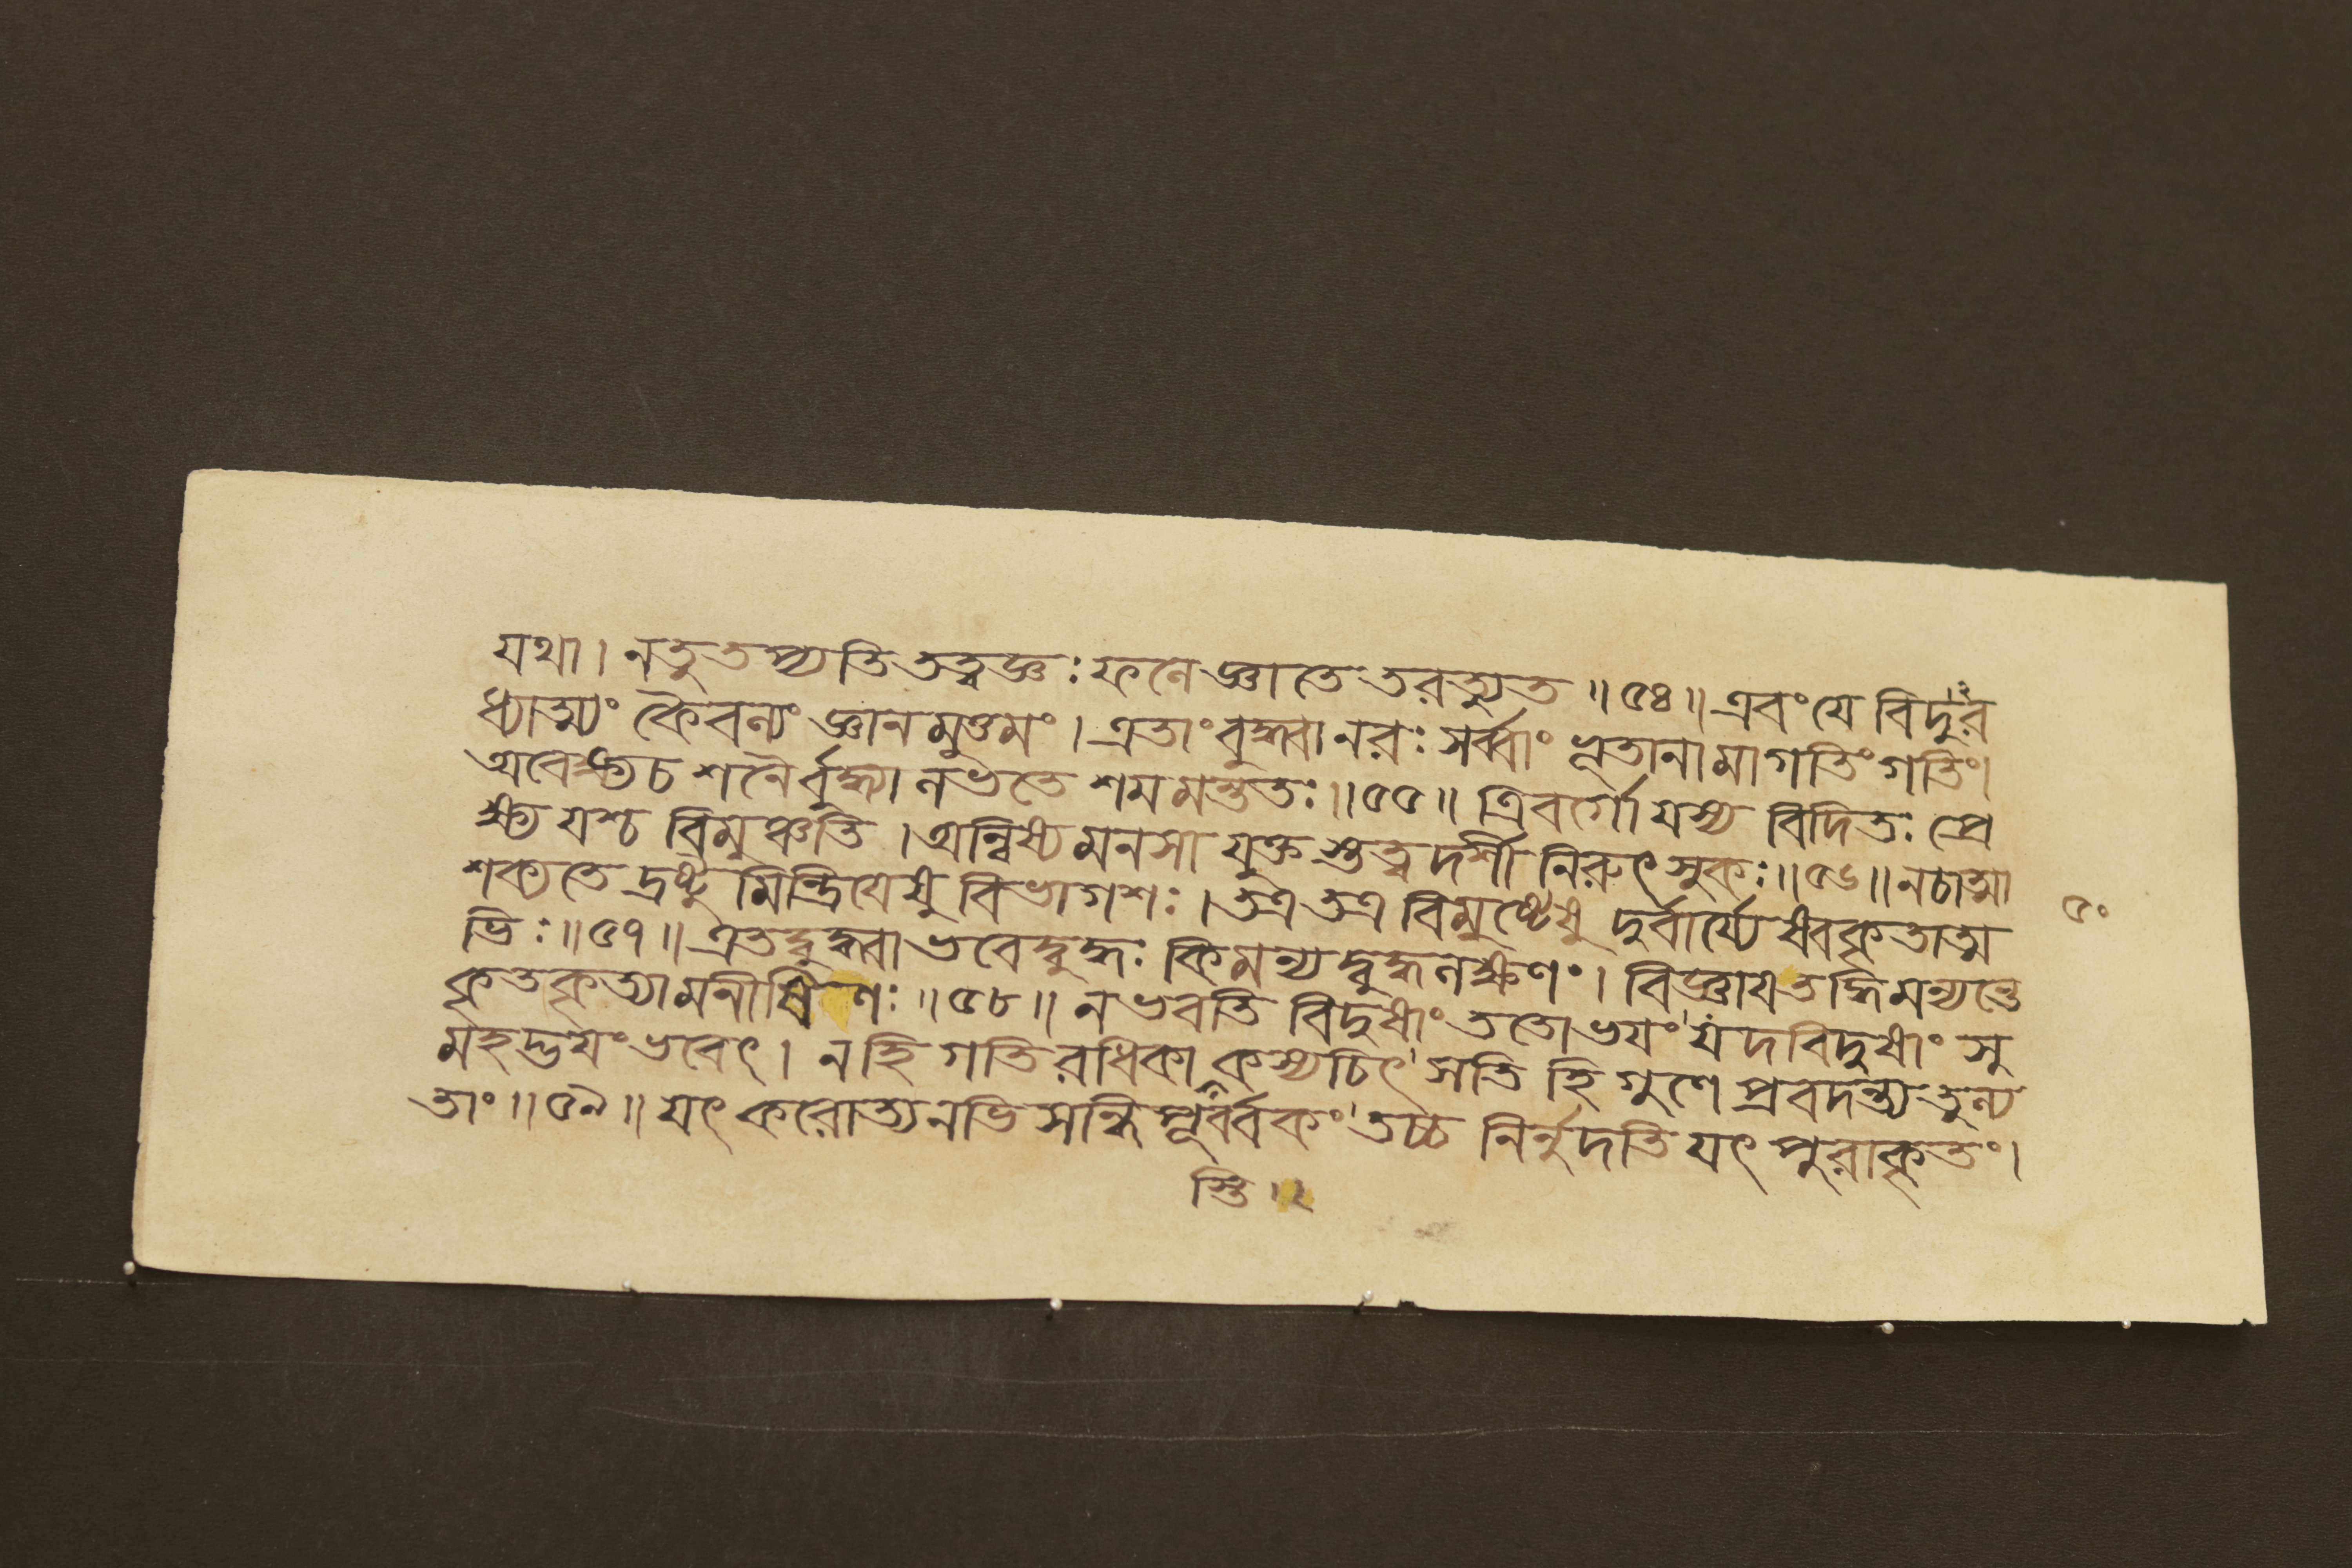 যথা। নতু তপ্যতি তত্ত্বজ্ঞঃ ফলে জ্ঞাতে তরত্যুত॥৫৪॥ এবং যে বিদুর
ধ্যাত্ম্যং কৈবল্যং জ্ঞানমুত্তমং। এতাং বুদ্ধ্বা নরঃ সর্ব্বাং ভূতানামাগতিং গতিং।
অবেক্ষ্য চ শনৈর্বুদ্ধ্যা লভতে শমমন্ততঃ॥৫৫॥ ত্রিবর্গো যস্য বিদিতঃ প্রে
ক্ষ্য যশ্চ বিমুঞ্চতি। অন্বিষ্য মনসা যুক্তস্তত্ত্বদর্শী নিরুৎসুকঃ॥৫৬॥ নচাত্মা
শক্যতে দ্রষ্টুমিন্দ্রিযেষু বিভাগশঃ। তত্র তত্র বিমুষ্টেষু দুর্বার্য্যেষ্বকৃতাত্ম
৫০
ভিঃ॥৫৭॥ এতদ্বুদ্ধ্বা ভবেদ্বুদ্ধঃ কিমন্যদ্বুদ্ধলক্ষণং। বিজ্ঞায তদ্ধি মন্যন্তে
কৃতকৃত্যা মনীষিণঃ॥৫৮॥ ন ভবতি বিদুষাং ততো ভযং যদবিদুষাং সু
মহদ্ভযং ভবেৎ। নহি গতিরধিকা কস্যচিৎ সতি হি গুণে প্রবদন্ত্যতুল্য
তাং॥৫৯॥ যৎ করোত্যনভিসন্ধিপূর্ব্বকং তচ্চ নির্নুদতি যৎ পুরাকৃতং।
স্তি॥২